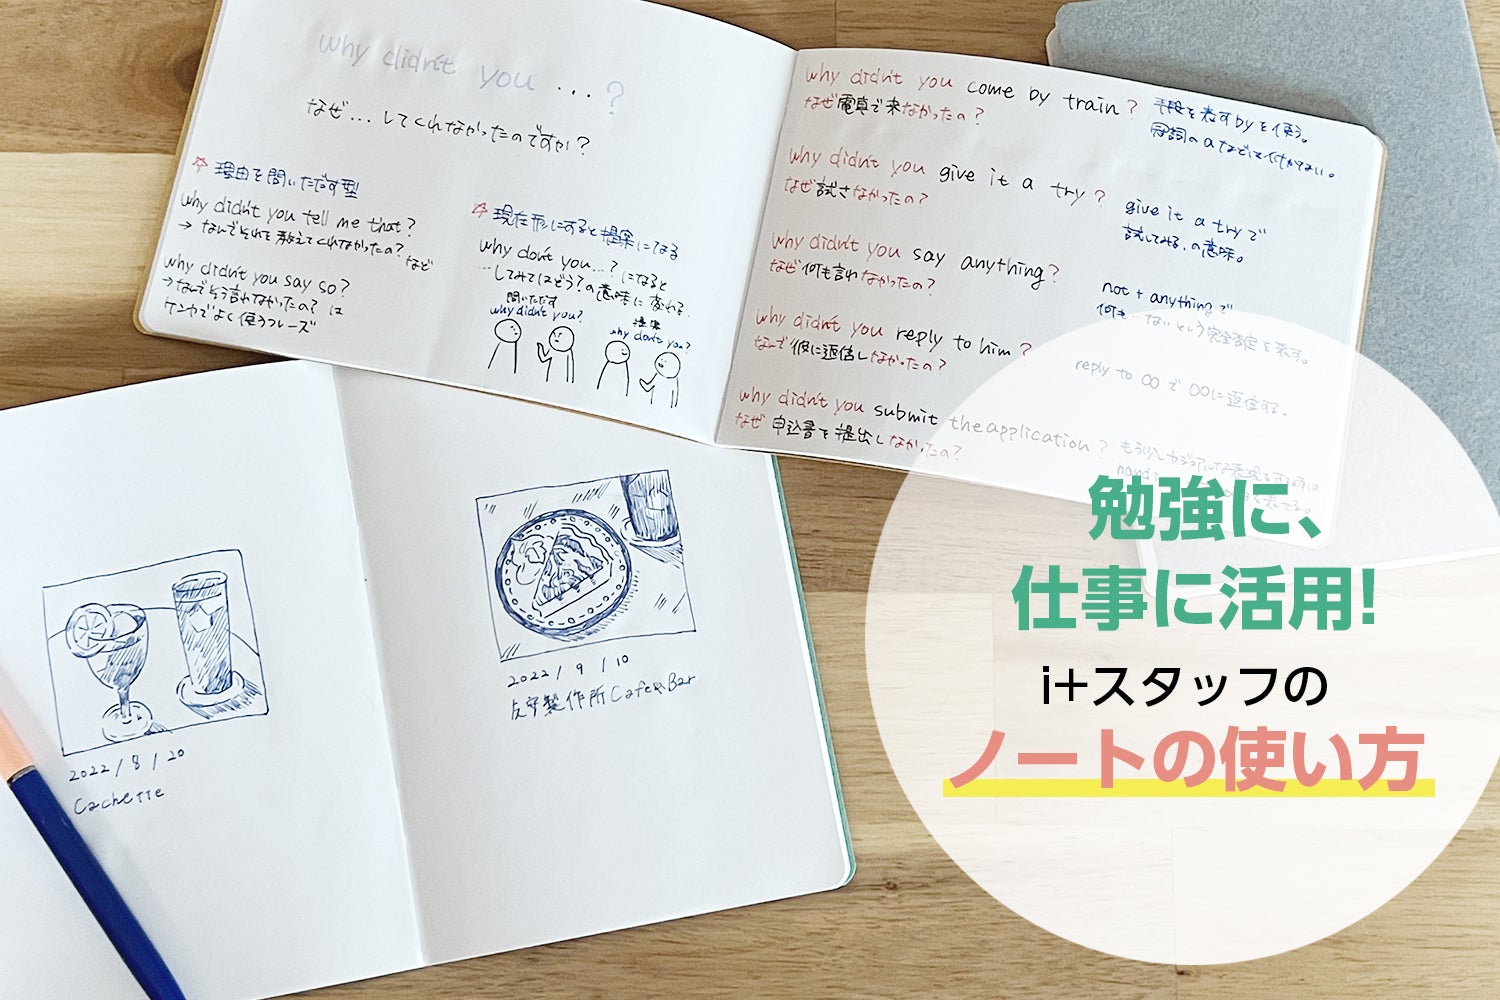 why didn't you ...?
なぜ...してくれなかったのですか?
☆理由を問いただす型
why didn't you tell me that?
→ なんでそれを教えてくれなかったの? など
why didn't you say so?
→なんでそう言わなかったの? は
ケンカでよく使うフレーズ
☆現在形にすると提案になる
why don't you...? になると
…してみてはどう?の意味に変わる.
問いただす
why didn't you?
提案
why don't you?
why didn't you come by train?
なぜ電真で来なかったの?
手段を表すbyを使う。
冠詞のaなどは付かない。
why didn't you give it a try?
なぜ試さなかったの?
give it a tryで
試してみる.の意味。
why didn't you say anything?
なぜ何も言わなかったの?
not + anythingで
何も…ないという完全否定を表す。
why didn't you reply to him?
なんで彼に返信しなかったの?
reply to ○○で○○に返信する.
why didn't you submit the application?
なぜ申込書を提出しなかったの?
もう少しカジュアルな表現をする時は
2022/8/20
Cachette
2022/9/10
製作所Cafe&Bar
勉強に、
仕事に活用!
i+スタッフの
ノートの使い方